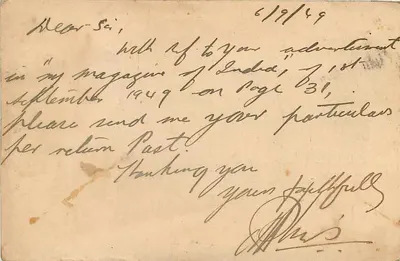 6/9/49
Dear Sir,
With ref to your "advertisment
in "my magazine of India", of 1st
September 1949 on Page 31,
please send me your particulars
per return Post.
Thanking you
yours faithfully